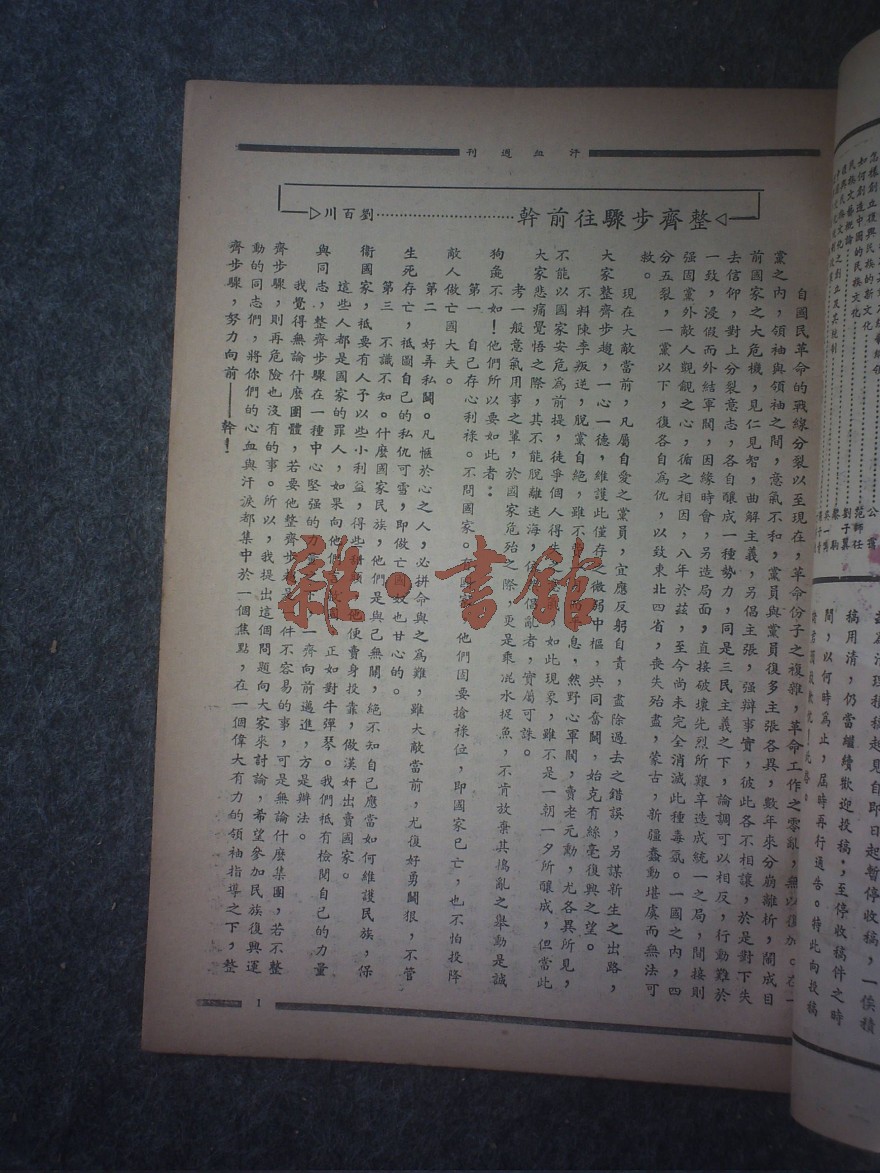 汗血週刊
整齊步驟往前幹……………………劉百川
自國民革命的戰線分裂以至現在，革命份子之複雜，革命工作之零亂，無以復加。在一
黨之內，領袖與領袖之間，意氣不和，黨員與黨員復多主張各異，數年來分崩離析，鬧成目
前國家之大危機，見仁見智，曲解主義，另倡主張，强辯事實，彼此各不相讓，於是對下失
去信仰，對上分裂意志，各自釀成一種勢力，同是三民主義之下，論調可以相反，行動難於
一致，浸假而外結軍閥，因緣時會，另造局面，直接破壞先烈所艱辛造成統一之局，間接則
强固黨外敵人覬覦之心，循之相因，八年於茲，至今尚未完全消滅此種毒氛。一國之內，四
分五裂，一黨以下，復各自為仇，以致東北四省，喪失殆盡，蒙古，新疆蠢動堪虞而無法可
救。
現在大敵當前，凡屬自愛之黨員，宜應反躬自責，盡除過去之錯誤，另謀新生之出路，
大家整齊步趨，一心一德，維護此僅存之微弱中樞，共同奮鬪，始克有絲毫復興之望。
不料陳李叛逆，脫黨自絕，雖不 息，然野心軍閥，賣老元勳，尤各異所見，
不能以國家安危為前提，徒爭個人得失 如此現象，雖不是一朝一夕所釀成，但當此
大家悲痛覺悟之際，其不能脫離迷海， 倡亂者，實屬可誅。
考一般意氣用事之輩，於國家危殆之際，更是乘混水捉魚，不肯放棄其搗亂之舉動是誠
狗彘不如！他們所以要如此者：
第一　自己存心利祿。不問國家。 他們固要搶祿位，即國家已亡，也不怕投降
敵人做亡國大夫。
第二　好弄私鬪。凡愜於心之人，必拼命與之為難，雖大敵當前，尤復好勇鬪狠，不管
生死存亡，祗圖自己的私仇可雪，即做亡國奴也甘心的。
第三　不識不知。什麼國家民族，他們是與己無關，絕不知自己應當如何維護民族，保
衞國家，祗要有人予以些小利益，得些 他便賣身投靠，做漢奸出賣國家。
這些人都是國家的罪人，如果向他們 正如對牛彈琴。我們祗有檢閱自己的力量
與同志，整齊步驟在一種中心堅强的力 一齊向前邁進，方是辦法。
我覺得無論什麼團體，若要他整齊步 是一件不容易的事，可是無論什麼集團，若不整
齊步驟，則再危險也沒有的事。所以，我提出這個問題向大家來討論，希望參加民族復興運
動的同志們，將你們的心血與汗淚都集中於一個焦點，在一個偉大有力的領袖指導之下，整
齊步驟，努力向前——幹！
1
雜・書館
怎樣創立復興民族的新文化
如何創造中國的民族文化
民族文藝概論
稿用清，仍當繼續歡迎投稿；至停收稿件之時
間，以何時為止，屆時再行通告。特此向投稿